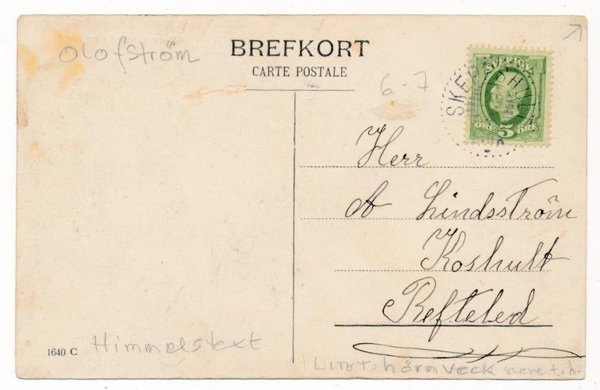 Olofström
BREFKORT
CARTE POSTALE
6-7
SVERIGE
ÖRE 5 ÖRE
Herr
A Lindsström
Koshult
Refteled
1640 C
Himmelstext
hörnveck nere t.h.